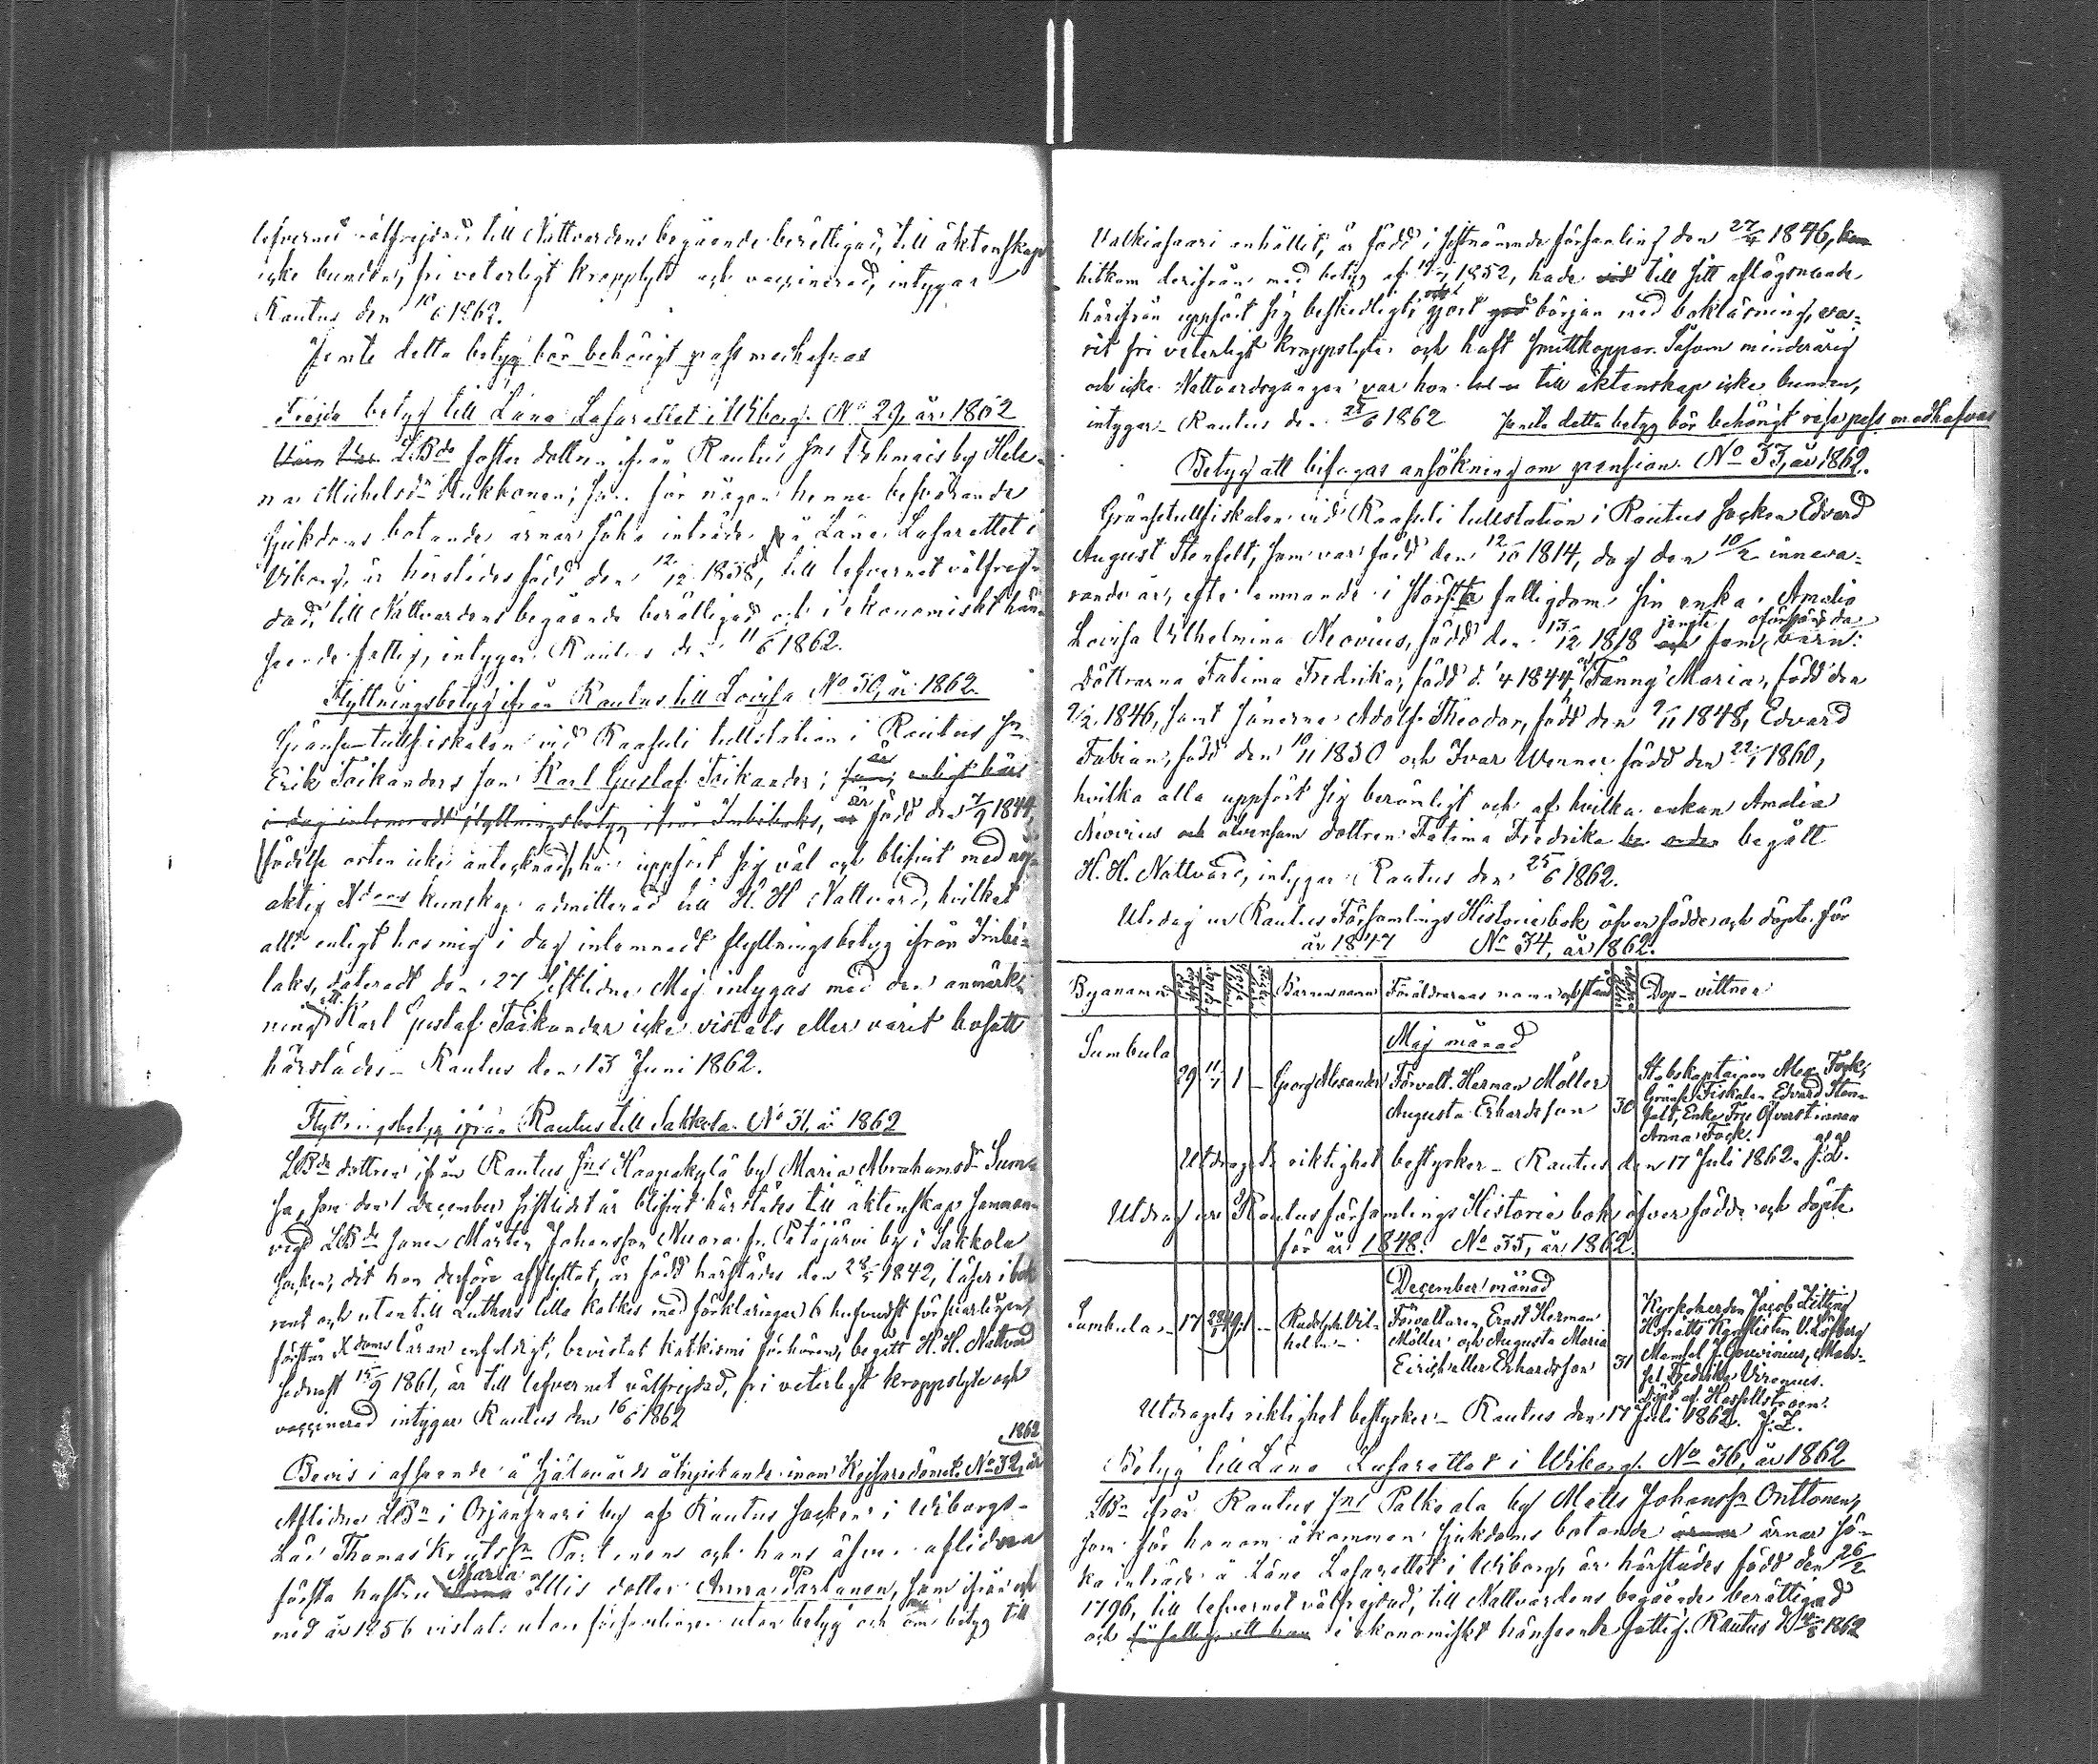 lefvernet välfrejdad, till Nattvardens begående berättigad, till äktenskap
icke bunden, fri veterligt kroppslyte och vaccinerad, intygar
Rautus den 10/6 1862.
Jemte detta betyg bör behörigt pass medhafvas
Frejde betyg till Läne Lasarettet i Wiborg. No 29, år 1862
LBde foster dottren ifrån Rautus Sns Vehmais by Hele-
na Michelsdr Mukkonen; som för någon henne besvärande
sjukdoms botande ärnar söka inträde på Läne Lasarettet i
Viborg, är härstädes född den 12/12 1838, till lefvernet välfrej-
dad, till Nattvardens begående berättigad och i ekonomiskt hän-
seende fattig, intygar Rautus den 11/6 1862.
Flyttningsbetyg ifrån Rautus till Lovisa No 30, år 1862.
Gränse-tullfiskalen vid Raasuli tullstation i Rautus Sn
Erik Toikanders son Karl Gustaf Toikander; är som, enligt här
i dag inlemnadt flyttningsbetyg ifrån Imbilaks, är född den 7/9 1844,
(födelse orten icke antecknad), har uppfört sig väl och blifvit med nöj-
aktig Xdoms kunskap admitterad till H. H. Nattvard, hvilket
allt enligt hos mig i dag inlemnadt flyttningsbetyg ifrån Imbi-
laks, dateradt den 27 sistlidne Maj intygas med den anmärk-
ning att Karl Gustaf Toikander icke vistats eller varit bosatt
härstädes - Rautus den 13 Juni 1862.
Flyttningsbetyg ifrån Rautus till Sakkola. No 31, år 1862
LBde dottren ifrån Rautus Sns Haapakylä by Maria Abrahamsdr Sum-
sa, som den 1 December sistlidet år blifvit härstädes till äktenskap samman-
vigd LBde sonen Mårten Johansson Nuora fr. Petäjärvi by i Sakkola
socken; dit hon derföre afflyttat, är född härstädes den 28/5 1842, läser i bok
rent och utantill Luthers lilla katkes med förklaringar
förstår Xdomsläran enfaldigt, bevistat katkismi förhören, begått H. H. Nattvard
sednast 15/9 1861, är till lefvernet välfrejdad, fri veterligt kroppslyte och
vaccinerad intygar Rautus den 16/6 1862
1862
Bevis i afseende å själavårds åtnjutande inom Kejsaredömet. No 32, år
Aflidne LBn i Orjansaari by af Rautus Socken i Wiborgs-
Län Thomas Knutsn Partanens och hans äfven aflidna
första hustru Maria Anna Ellis dotter Anna Partanen, som ifrån och
med år 1856 vistats utom församlingen utan betyg och nu om betyg till
Valkiasaari anhållit, är född i sistnämnde församling den 27/4 1846, kom
hitkom derifrån med betyg af 1852, hade vid till sitt aflägsnande
härifrån uppfört sig beskedligt, gjort god början med bokläsning, va-
rit fri veterligt kroppslyte och haft smittkoppor. Såsom minderårig
och icke Nattvardsgången var hon till äktenskap icke bunden,
intygar Rautus den 25/6 1862 Jemte detta betyg bör behörigt resepass medhafvas
Betyg att bifogas ansökning om pension. No 33, år 1862.
Gränsetullfiskalen vid Raasuli tullstation i Rautus Socken Edvard
August Stenfelt, som var född den 12/10 1814, dog den 10/2 inneva-
rande år, efterlemnande i största fattigdom sin enka Amalia
Lovisa Vilhelmina Neovius, född den 13/12 1818 jemte och fem oförsörjda barn:
Döttrarna Fatima Fredrika, född d. 1/4 1844, och Fanny Maria, född den
2/2 1846, samt sönerne Adolf Theodor, född den 9/11 1848, Edvard
Fabian, född den 10/11 1850 och Ivar Werner född den 22/1 1860,
hvilka alla uppfört sig berömligt och af hvilka enkan Amalia
Neovius och äfvensom dottren Fatima Fredrika begått
H. H. Nattvard, intygar Rautus den 25/6 1862.
Utdrag ur Rautus Församlings Historie bok öfver födde och döpte för
år 1847 No 34, år 1862.
Byanamn Barnens namn Föräldrarnas namn och stånd Dop-vittnen
Maj månad
Sumbula 29 1 - Georg Alexander Förvalt. Herman Möller Augusta Erhardsson 30
Stabskaptainen Alex. Fock,
Gränse Fiskalen Edvard Sten-
felt, Enke Fru Öfverstinnan
Anna Fock.
Utdragets riktighet bestyrker - Rautus den 17 Juli 1862.
Utdrag ur Rautus församlings Historie bok öfver födde och döpte
för år 1848. No 35, år 1862.
December månad
Sumbula - 17 1 - Rudolph Vil-
helm - Förvaltaren Ernst Herman
Möller och Augusta Maria
Erhardsson 31
Kyrkoherden Jacob Zitting
Hofrätts Kanslisten
Mamsel
Fredrika
Utdragets riktighet bestyrker - Rautus den 17 Juli 1862. J. Z.
Betyg till Läne Lasarettet i Wiborg. No 36, år 1862
LBn ifrån Rautus Sns Palkeala by Matts Johanssn Onttonen,
som för honom åkommen sjukdoms botande ärnar ärnar sö-
ka inträde å Läne Lasarettet i Wiborg, är härstädes född den 26/2
1796, till lefvernet välfrejdad, till Nattvardens begående berättigad
och i ekonomiskt hänseende fattig. Rautus d. 4/8 1862